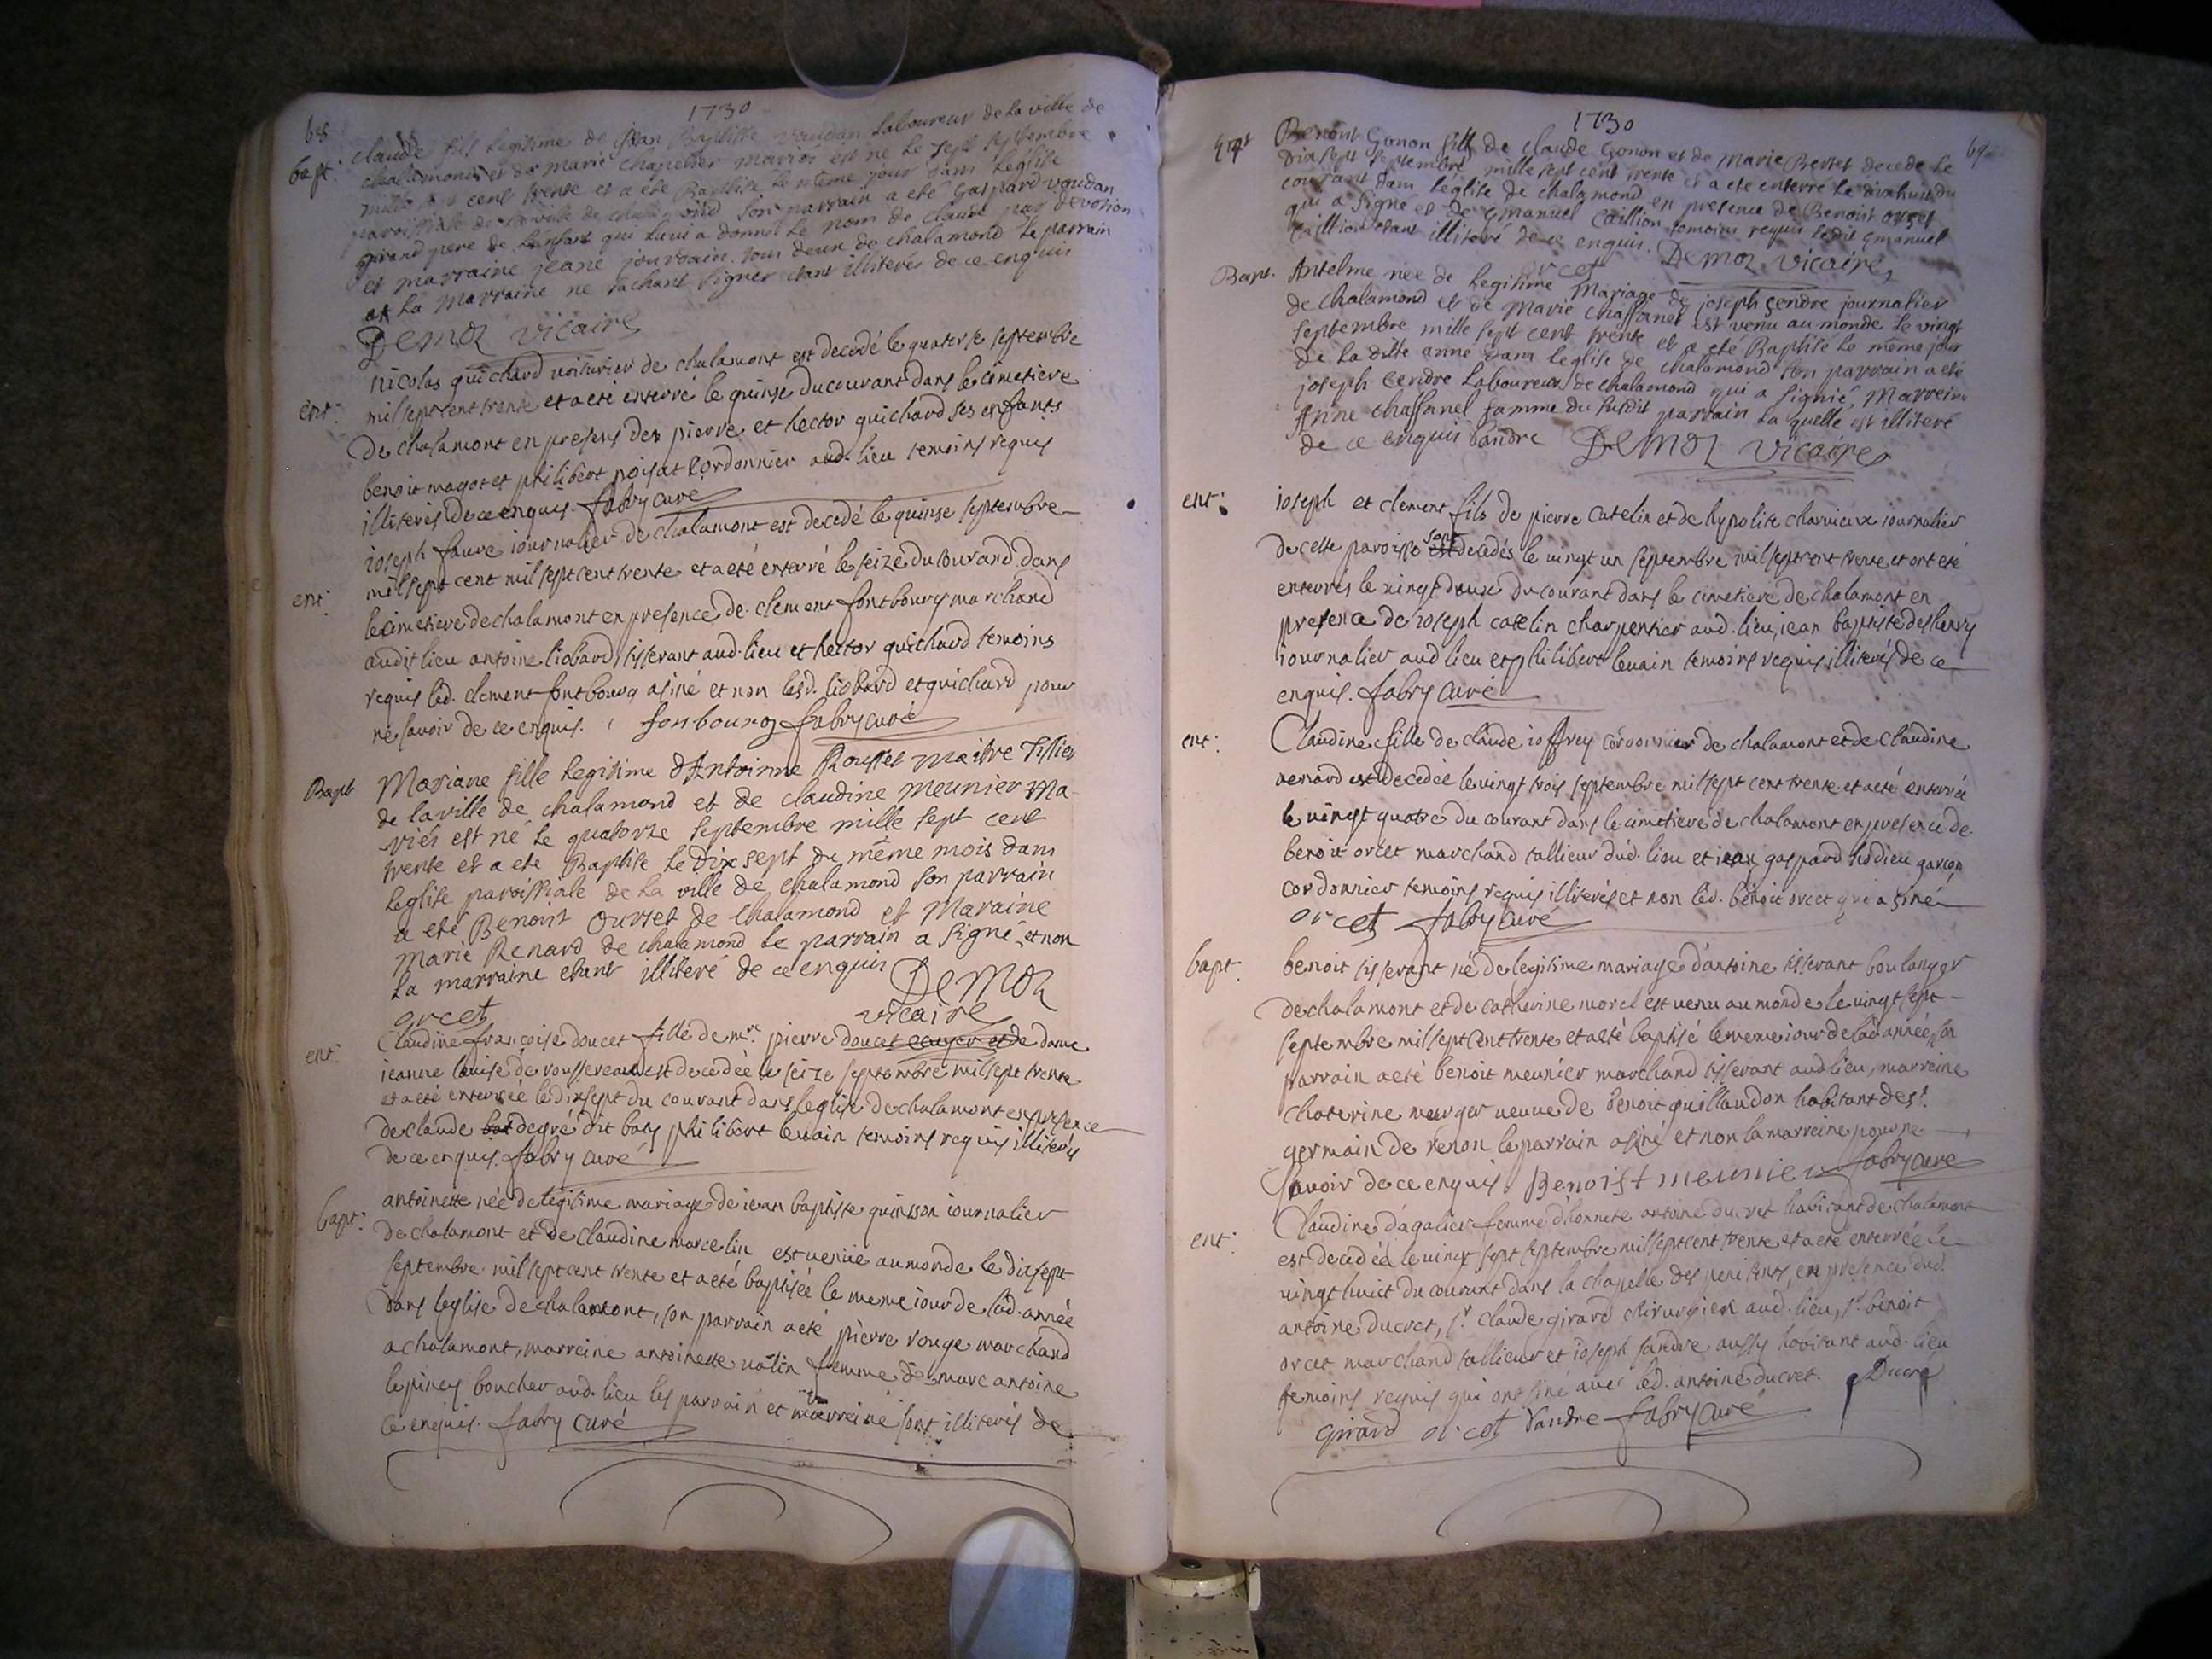 1730
68
bapt: claude fils legitime de jean Baptiste vaudan Laboureur de la ville de
chalamond et de marie chapelier mariés est né le sept septembre
mille sept cent trente et a eté Baptisé le même jour dans l'eglise
paroissiale de la ville de chalamond son parrain a eté Gaspard voudan
grand pere de l'enfant qui lui a donné le nom de claude par devotion
et marraine jeane jourdain tous deux de chalamond le parrain
et la marraine ne sachant signer etant illiterés de ce enquis
Demoz vicaire
ent: nicolas guichard voiturier de chalamont est decedé le quatorse septembre
mil sept cent trente et a eté enterré le quinse du courant dans le cimetiere
de chalamont en presens des pierre et hector guichard ses enfants
benoit magot et philibert poisat cordonnier aud. lieu temoins requis
illiterés de ce enquis. fabry curé
ent: ioseph faure iournalier de chalamont est decedé le quinse septembre
mil sept cent mil sept cent trente et a eté enterré le seize du courand dans
le cimetiere de chalamont en presence de clement fontbourg marchand
audit lieu antoine liobard tisserant aud. lieu et hector guichard temoins
requis led. clement fontbourg a siné et non lesd. liobard et guichard pour
ne savoir de ce enquis. fonbourg fabry curé
Bapt Mariane fille legitime d'Antoinne Rousset Maitre Tissier
de la ville de chalamond et de claudine Meunier Ma-
riés est né le quatorze septembre mille sept cent
trente et a ete Baptise le Dixsept du même mois dans
leglise paroissiale de la ville de chalamond son parrain
a eté Benoist Ourset de chalamond et Maraine
Marie Renard de chalamond le parrain a signé et non
la marraine etant illiteré de ce enquis Demoz
orcet vicaire
ent: Claudine françoise doucet fille de mr. pierre doucet ecuyer et de dame
ieanne louise de rousseveau est decedée le seize septembre mil sept trente
et a eté enterrée le dixsept du courant dans leglise de chalamont en presence
de claude bat degré dit baty philibert levain temoins requis illiterés
de ce enquis. fabry curé
bapt: antoinette née de legitime mariage de iean baptiste quinson iournalier
de chalamont et de claudine marcelin est venüe au monde le dixsept
septembre mil sept cent trente et a eté baptisée le meme iour de lad. année
dans leglise de chalamont, son parrain a eté pierre rouge marchand
a chalamont, marreine antoinette vatin femme de marc antoine
lepiney boucher aud. lieu les parrain et marreine sont illiterés de
ce enquis. fabry curé
1730
69
Benoit Gonon fils de claude Gonon et de Marie Berset decede le
Dixsept septembre mille sept cent trente et a ete enterré le dixhuit du
courant dans l'église de chalamond en presence de Benoist orset
qui a signé et de Emanuel Caillion temoins requis ledit Emanuel
Caillion etant illiteré de ce enquis. Demoz vicaire
orcet
Bapt. Antelme née de legitime Mariage de joseph Cendre journalier
de chalamond et de Marie chaffanel est venu au monde le vingt
septembre mille sept cent trente et a eté Baptisé le même jour
de la ditte anné dans leglise de chalamond son parrain a eté
joseph Cendre laboureur de chalamond qui a signié Marreine
Anne chaffanel famme du susdit parrain la quelle est illiteré
de ce enquis Sandre Demoz vicaire
ent: ioseph et clement fils de pierre catelin et de hypolite charvieux iournalier
de cette paroisse sont decedés le vingt un septembre mil sept cent trente et ont eté
enterrés le vingt deux du courant dans le cimetiere de chalamont en
presence de ioseph catelin charpentier aud. lieu, iean baptiste deshenry
iournalier aud lieu et philibert levain temoins requis illiterés de ce
enquis. fabry curé
ent: Claudine fille de claude ioffrey cordonnier de chalamont et de claudine
renard est decedée le vingt trois septembre mil sept cent trente et a eté enterrée
le vingt quatre du courant dans le cimetiere de chalamont en presence de
benoit orcet marchand tallieur dud. lieu et iean gaspard hodieu garçon
cordonnier temoins requis illiterés et non led. benoit orcet qui a siné
orcet fabry curé
bapt. benoit tisserant né de legitime mariage d'antoine tisserant boulanger
de chalamont et de catherine morel est venu au monde le vingt sept
septembre mil sept cent trente et a eté baptisé le meme iour de lad. année son
parrain a eté benoit meunier marchand tisserant aud lieu, marreine
chaterine meurger veuve de benoit guillaudon habitant de st.
germain de renon le parrain a siné et non la marreine pour ne
savoir de ce enquis. Benoist meunier fabry curé
ent: Claudine dagalier femme d'honnete antoine ducret habitant de chalamont
est decedée le vingt sept septembre mil sept cent trente et a eté enterrée le
vingt huict du courant dans la chapelle des penitents, en presence dud.
antoine ducret, sr. claude girard chirurgien aud. lieu, sr. benoit
orcet marchand tallieur et ioseph sandre aussy habitant aud. lieu
temoins requis qui ont siné avec led. antoine ducret. Ducré
Girard orcet Sandre fabry curé